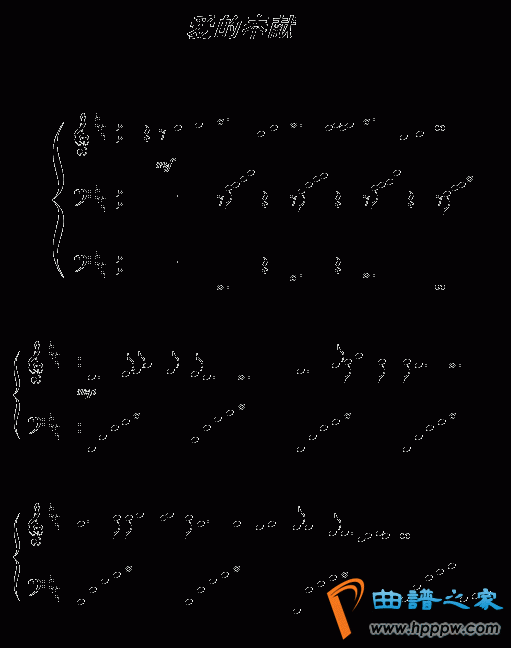 爱的奉献
mf
mp
曲谱之家
www.hppw.com